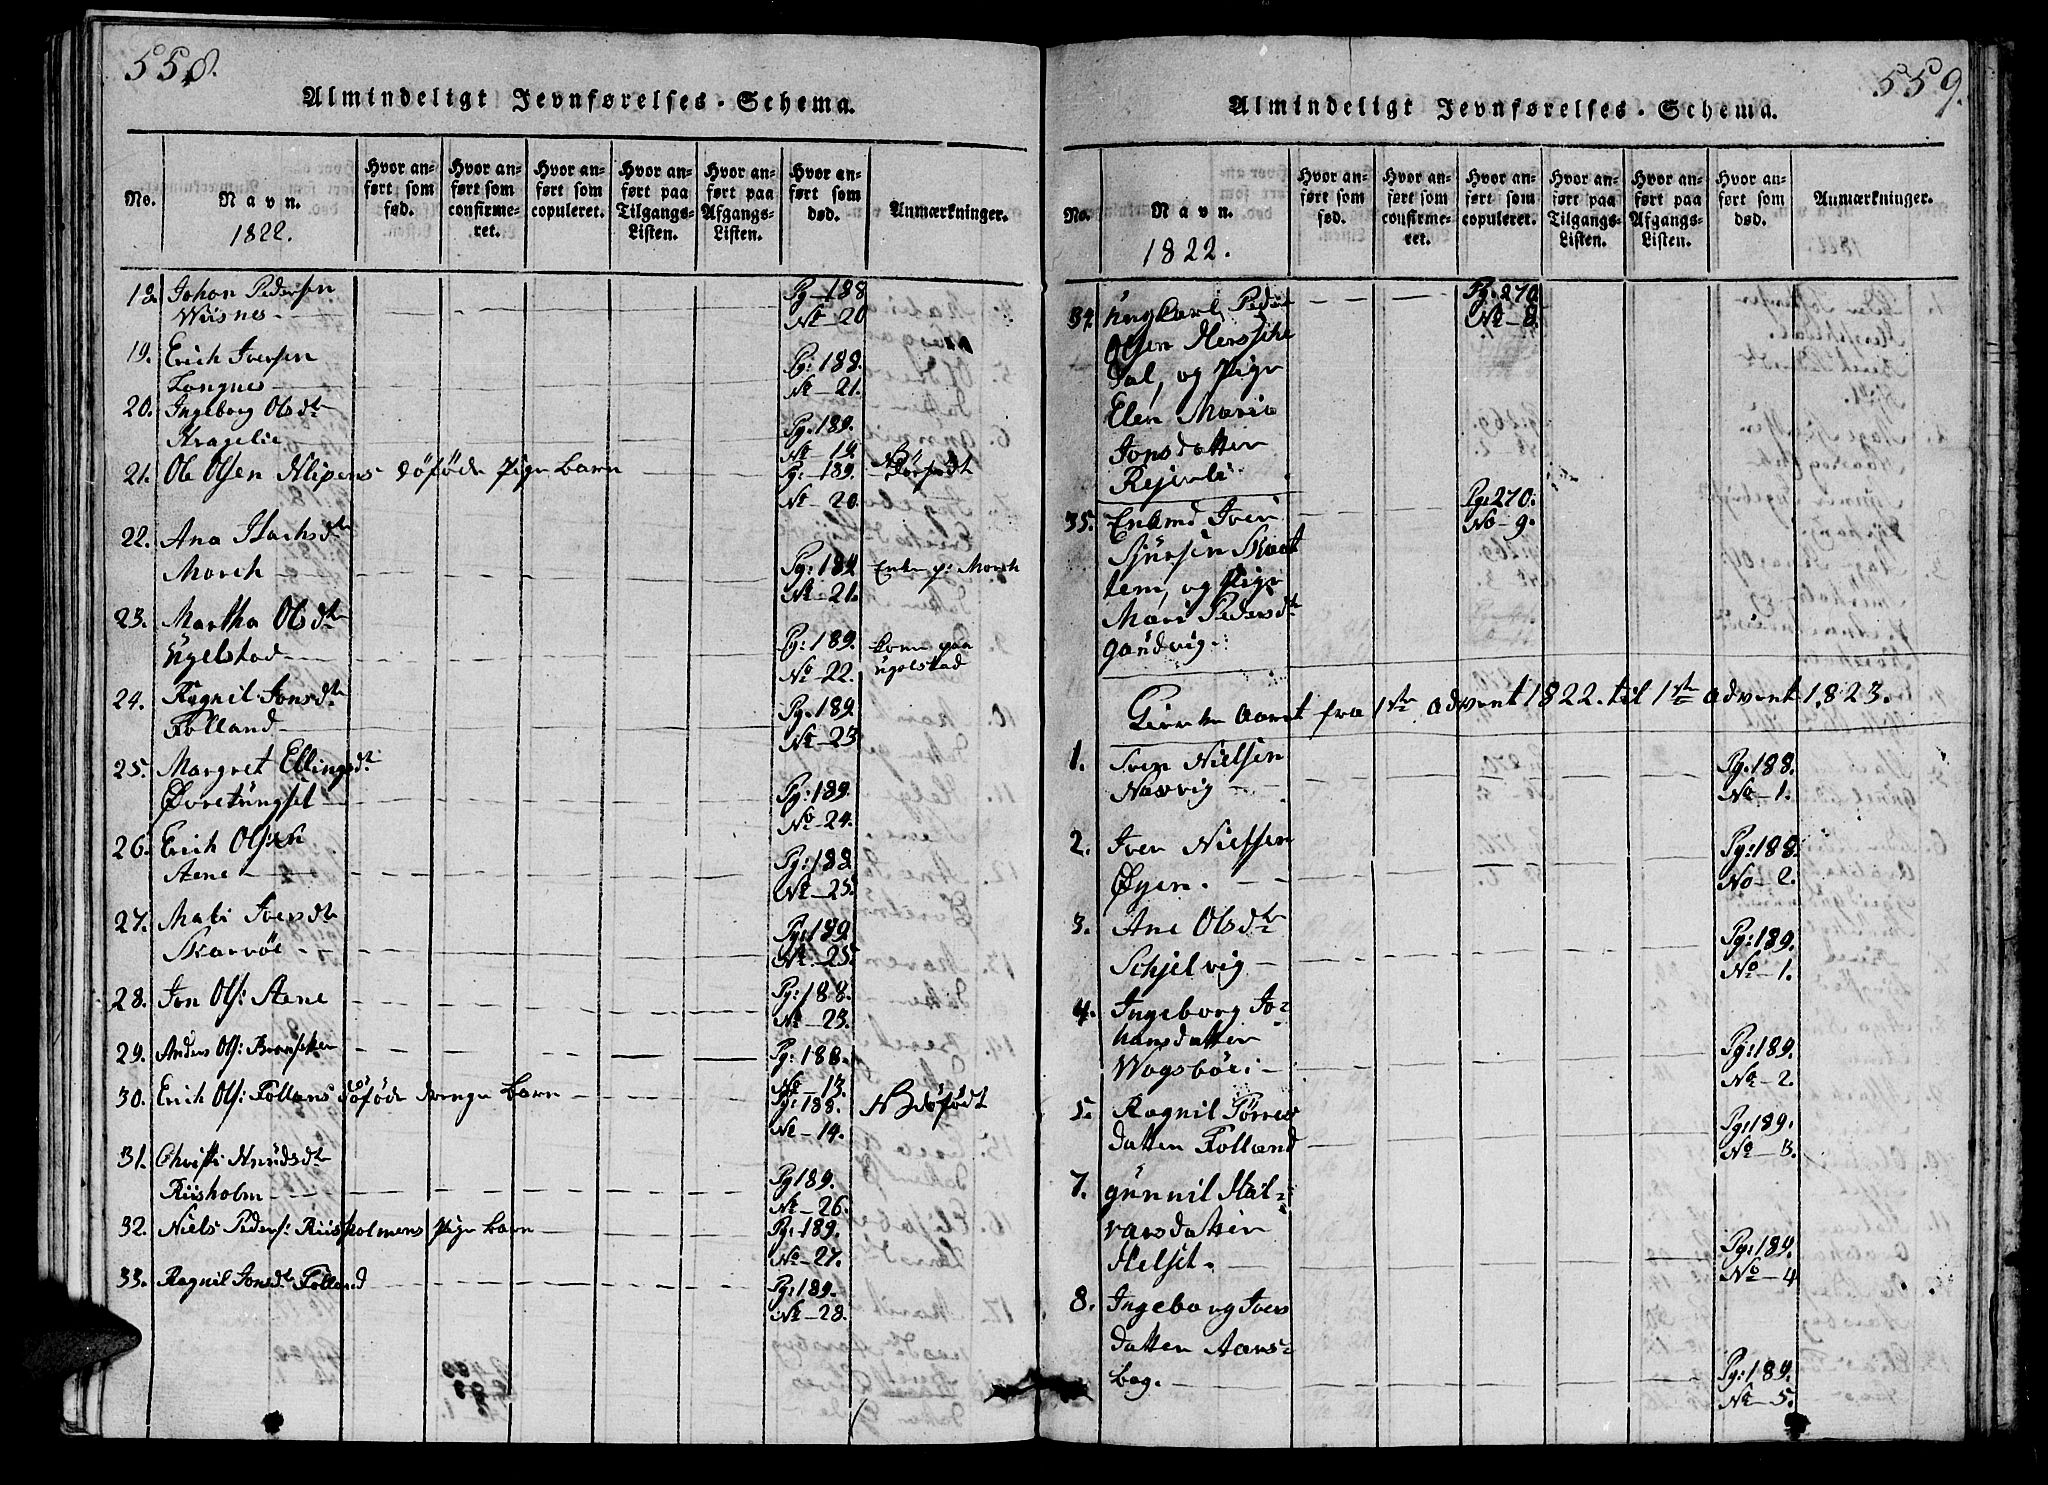 558.
Almindeligt Jevnførelses-Schema.
No.
Navn.
1822.
Hvor anført som fød.
Hvor anført som confirmeret.
Hvor anført som copuleret.
Hvor anført paa Tilgangs-Listen.
Hvor anført paa Afgangs-Listen.
Hvor anført som død.
Anmærkninger.
18. Johan Pedersen Pg 188
Wiisnes No 20
19. Erich Iversen Pg: 188.
Langnes No 21.
20. Ingeborg Olsdtr Pg. 189.
Kragelie No 19.
21. Ole Olsen Klipens döföde Pige barn Pg: 189. Döfödt
No 20.
22. Ana
Morch Pg: 189 Enke p: Morch
No 21.
23. Martha Olsdtr Pg: 189. Kone paa
Ugelstad No 22. Ugelstad
24. Ragnil Jonsdtr Pg: 189
Folland No 23.
25. Margret Ellingsdtr Pg: 189.
Øvretungset No 24.
26. Erich Olsen Pg: 188
Aene No 25.
27. Mali Iversdtr Pg: 189
Skarvöe No 25.
28. Jon Ols: Aene Pg: 188.
No 23.
29. Anders Ols: Pg: 188.
No 13.
30. Erich Ols: Follans döföde drenge barn Pg: 188. NB döfödt
No 14.
31. Christi Knudsdtr Pg 189.
Riisholm No 26.
32. Niels Peders: Riisholmens Pige barn Pg: 189.
No 27.
33. Ragnil Jonsdtr Folland Pg: 189.
No 28.
559.
Almindeligt Jevnførelses-Schema.
No.
Navn.
1822.
Hvor anført som fød.
Hvor anført som confirmeret.
Hvor anført som copuleret.
Hvor anført paa Tilgangs-Listen.
Hvor anført paa Afgangs-Listen.
Hvor anført som død.
Anmærkninger.
34. Ungkarl Peder Pg. 270.
Olsen Hersche No 8.
dal, og Pige
Elen Maria
Jonsdatter
35. Enkmd Iver Pg: 270.
Sjursen Skaat No 9.
tem, og Pige
Mari Pedersdtr
Gaudvig.
Kirke Aaret fra 1ste Advent 1822. til 1ste Advent 1823.
1. Iver Nielsen Pg. 188.
Nasvig No 1.
2. Iver Nielsen Pg: 188.
Øyen. No 2.
3. Ane Olsdtr Pg: 189.
Schjelvig No 1.
4. Ingeborg Jo-
hansdatter Pg: 189.
Wogsböe: No 2.
5. Ragnil Torres Pg: 189.
datter Folland No 3.
7. Gunnil Hal-
varsdatter Pg: 189.
Helset. No 4
8. Ingeborg Ivers
datter Aars-
bog. Pg: 189.
No 5.